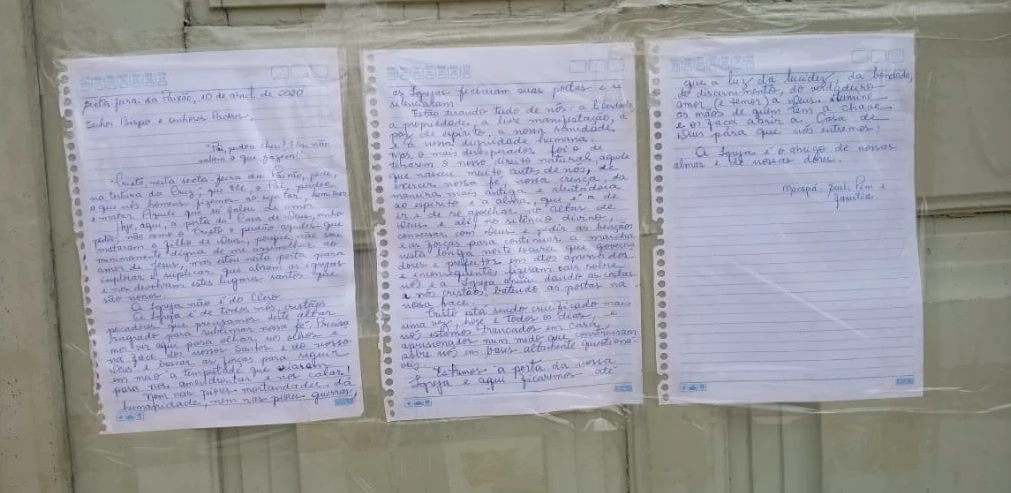 Sexta feira da Paixão, 10 de abril de 2020
Senhor Bispo e senhores Padres,
"Pai, perdoa-lhes! Eles não
sabem o que fazem!"
"Cristo, nesta sexta-feira da Paixão, pede,
na tortura da Cruz, que Ele, o Pai, perdoe
o que nós homens fizemos ao rejeitar, humilhar
e matar Aquele que só falou de amor.
Hoje, aqui, a porta da Casa de Deus, minha
não como o Cristo o perdão aqueles que
mataram o filho de Deus, porque não sou
minimamente digna de me assemelhar ao
amor de Jesus, mas estou nesta porta para
implorar e suplicar que abram as igrejas
e nos devolvam estes lugares santos que
são nossos.
A Igreja não é do Clero.
A Igreja é de todos nós, cristãos
pecadores que precisamos deste altar
sagrado para sublimar nossa fé. Precisa-
mos vir aqui para olhar, nos olhos
na face dos nossos Santos e do nosso
Deus e buscar as forças para seguir
em meio a tempestade que
para nos amedrontar e nos calar!
Nem nas piores mortandades da
humanidade, nem nas piores guerras,
as Igrejas fecharam suas portas e se
silenciaram.
Estão tirando tudo de nós: a liberdade,
a propriedade, a livre manifestação, a
paz de espírito, a nossa sanidade
e a nossa dignidade humana.
Mas, o mais desesperador foi o de
tirarem o nosso direito natural, aquele
que nasceu muito antes de nós, de
exercer nossa fé, nossa crença, da
maneira mais antiga e
ao espírito e a alma, que é a de
ir e de se ajoelhar no altar de
Deus e ali, no silêncio divino,
conversar com Deus e pedir as bençãos
e as forças para continuar a marcha
nesta longa noite escura que governa
dores e prefeitos em atos apressados
e inconsequentes fizeram cair sobre
nós e a Igreja anuiu dando as costas
a nós cristãos, batendo as portas na
nossa face.
Cristo está sendo crucificado mais
uma vez, hoje e todos os dias, e
nós estamos trancados em casa,
aprisionados num medo que construíram
sobre nós em bases altamente questioná-
veis.
Estamos a porta da nossa
Igreja e aqui ficaremos até
que a luz da lucidez, da bondade,
do discernimento, do verdadeiro
amor (e temor) a Deus ilumine
as mãos de quem tem a chave
e o faça abrir a Casa de
Deus para que nós entremos!
A Igreja é o abrigo de nossas
almas e de nossas dores.
família